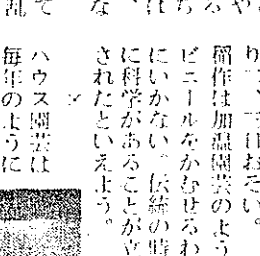 稲作は加温園芸のよう
ビニールをかむせるわ
にいかない。伝統の時
に科学があることが立
されたといえよう。
×
ハウス園芸は
毎年のように